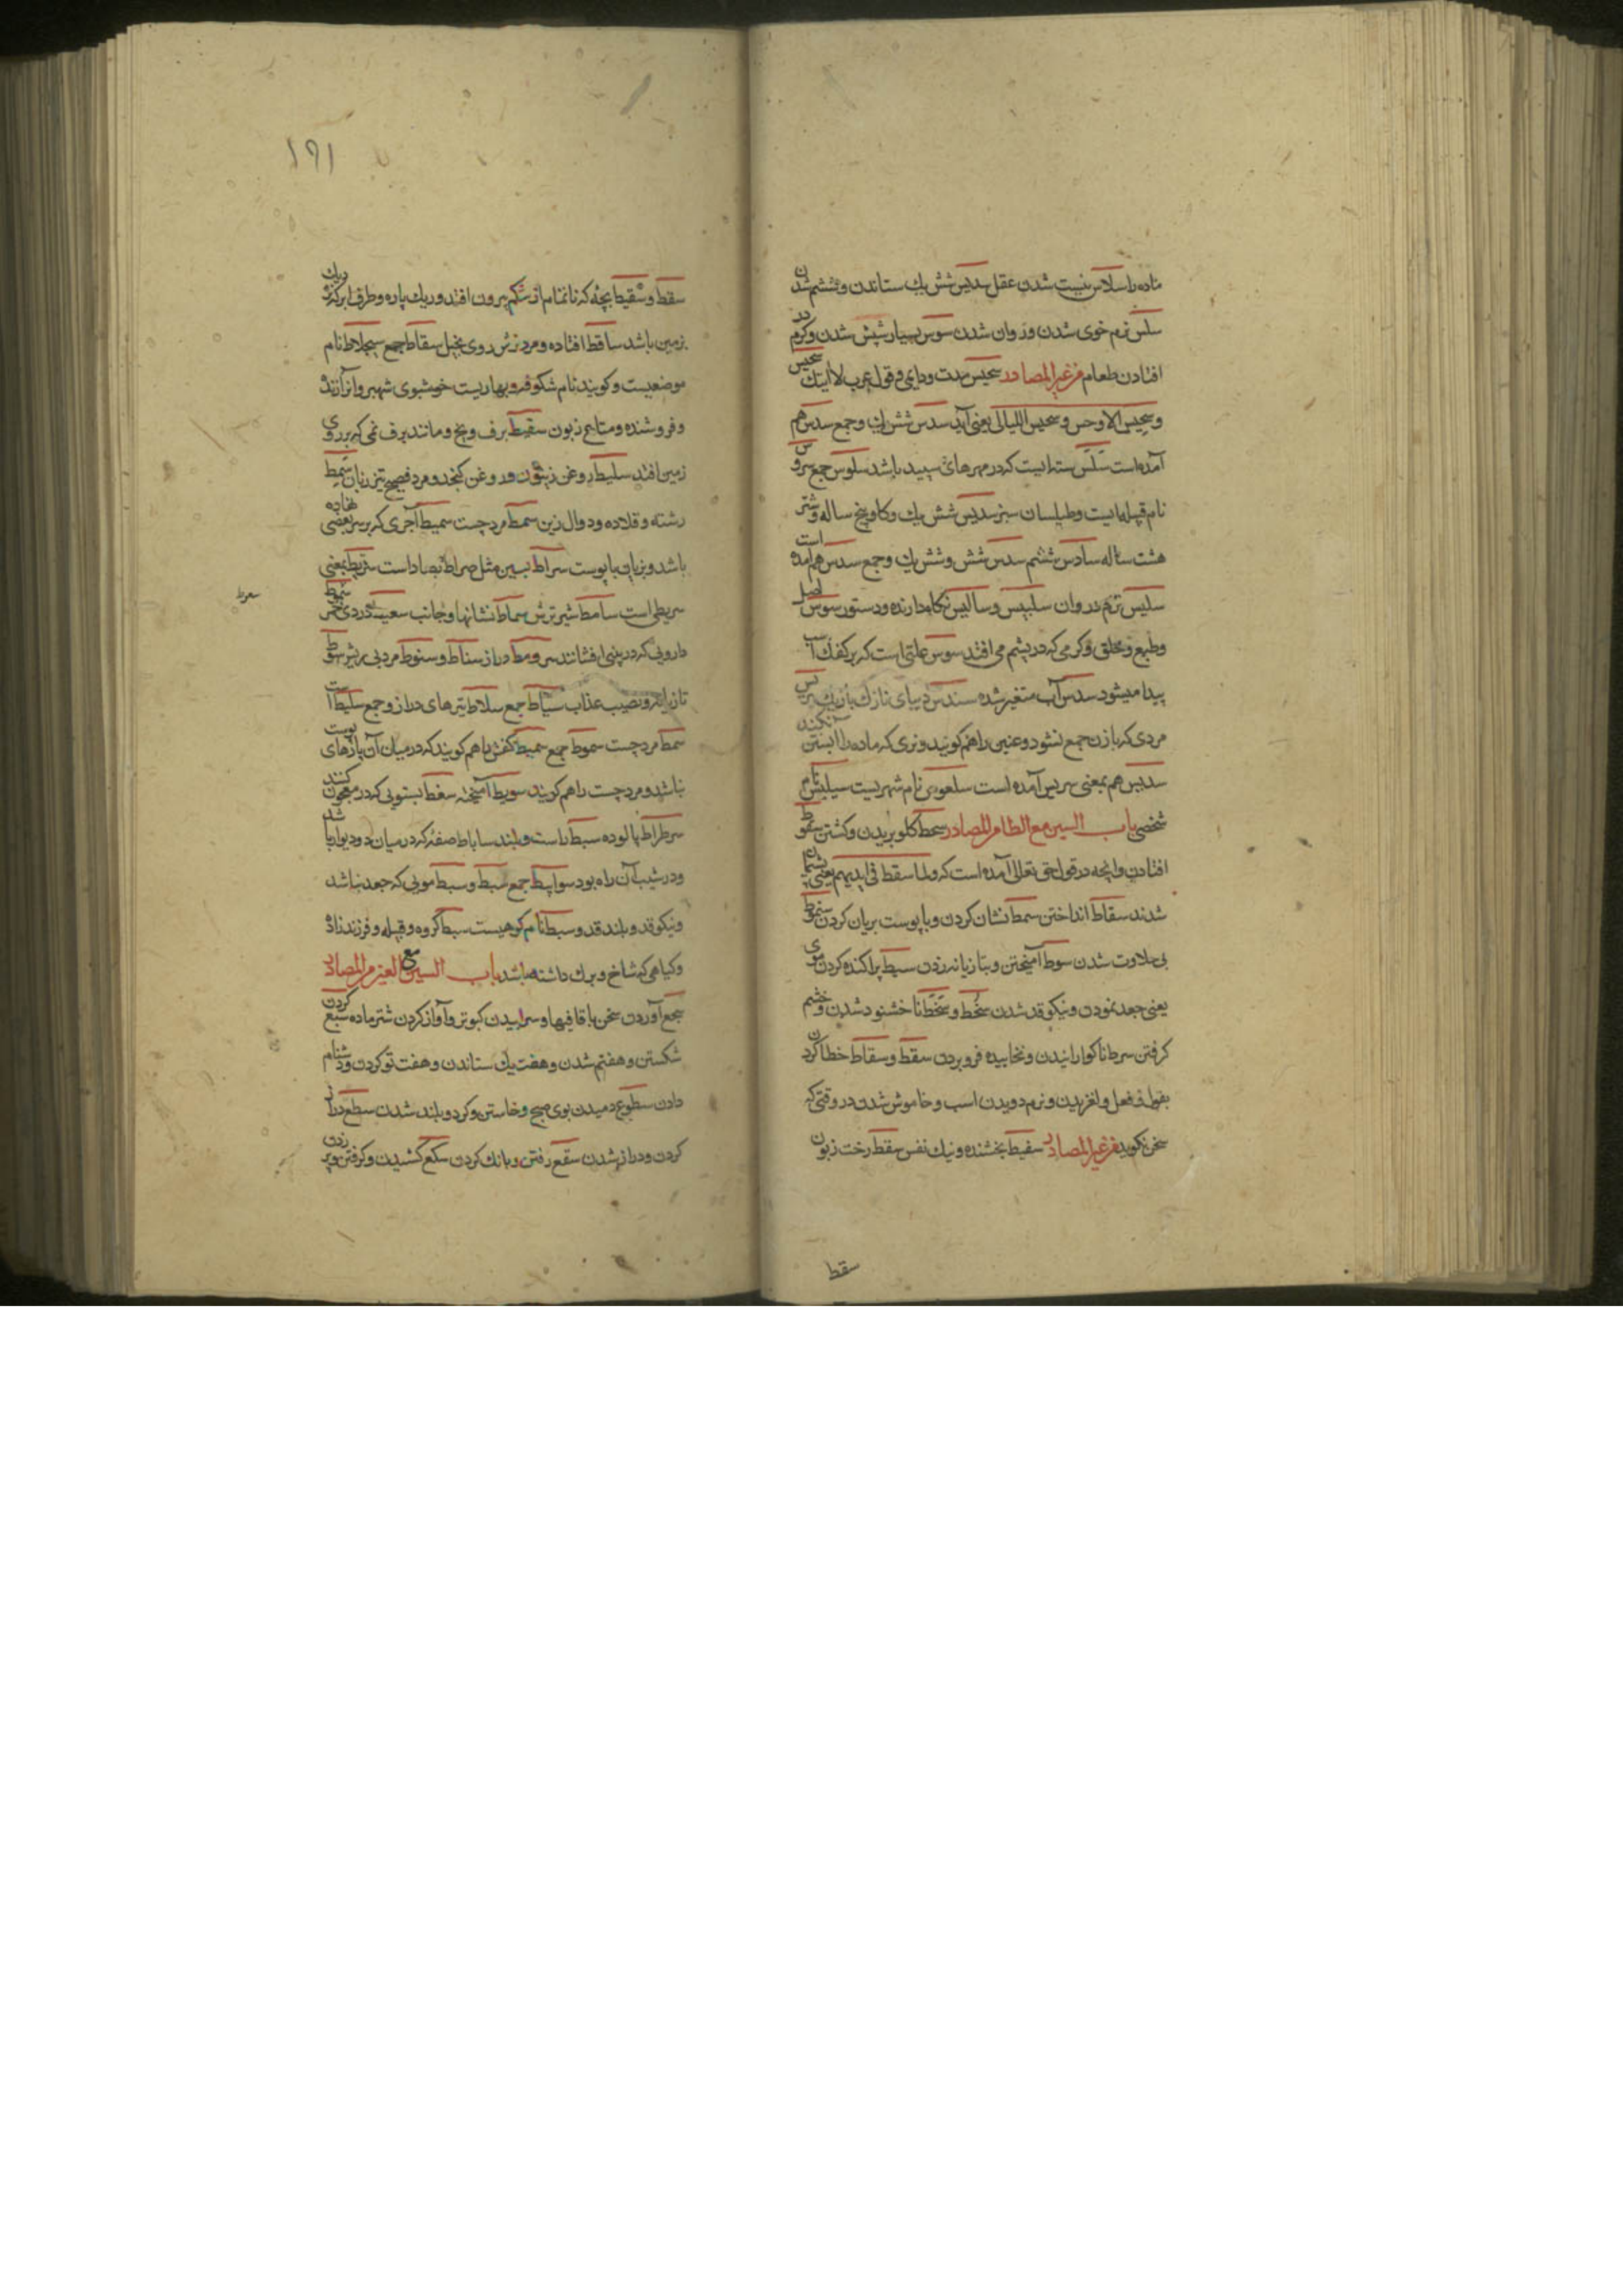 ماده را سلاس نیست شدن عقل سدس شش یك ستاندن و ششم شدن
سلس نرم خوی شدن و روان شدن سوس بسیار شپش شدن و کرم در
افتادن طعام من غیر المصادر سجیس مدت و دایمی و قول عرب لا آتیك سجیس
و سجیس الاوجس و سجیس اللیالی یعنی آید سدس شش یك و جمع سدس هم
آمده است سلس رشته ایست که در مهرهای سپید باشد سلوس جمع
نام قبیله ایست و طیلسان سبز سدیس شش یك و گاو پنج ساله و شتر
هشت ساله سادس ششم سدس شش و شش یك و جمع سدس هم آمده است
سلیس نرم و روان نگاه دارنده و دستور سوس اصل
و طبع و خلق و کرمی که در پشم می افتد سوس علتی است که بر کفك اسب
پیدا میشود سدس آب متغیر شده سندس دیبای نازك باریك
مردی که با زن جمع نشود و عنین را هم کویند و نری که ماده را آبستن نکند
سدیس هم بمعنی آمده است سلعوس نام شهریست نام
شخصی باب السین مع الطا من المصادر سحط کلو بریدن و کشتن سقوط
افتادن و آنچه در قول حق تعالی آمده است که ولما سقط فی ایدیهم یعنی پشیمان
شدند سقاط انداختن سمط نشان کردن و با پوست بریان کردن سموط
بی حلاوت شدن سوط آمیختن و بتازیانه زدن سبط پراکنده کردن موی
یعنی جعد نمودن و نیکو قد شدن سخط و سخط ناخشنود شدن و خشم
کرفتن سرط ناکوارانیدن و نخاییده فرو بردن سقط و سقاط خطا کردن
بقول و فعل و لغزیدن و نرم دویدن اسب و خاموش شدن در وقتی که
سخن نکوید من غیر المصادر سفیط بخشنده و نیك نفس سقط رخت زبون
سقط
١٩١
سقط و سقیط بچه که ناتمام از شکم بیرون افتد و ریك پاره و طرف ابر که نزدیك
بزمین باشد ساقط افتاده و مرد ترش روی بخیل سقاط جمع سجلاط نام
موضعیست و کویند نام شکوفه و بهاریست خوشبوی
و فروشنده و متاع زبون سقیط برف و یخ و مانند برف نمی که بر روی
زمین افتد سلیط روغن زیتون و روغن کنجد و مرد فصیح تیز زبان سمط
رشته و قلاده و دوال زین سمط مرد چست سمیط آجری که بر سر بعضی نهاده
باشد و بزیان با پوست سراط بسین مثل صراط بصاد است بمعنی
سریطی است سامط شیر ترش سماط نشانها و جانب دردی خمر
دارویی که در بینی افشانند سرومط دراز سناط و سنوط مرد بی ریش سوط
سعوط
تازیانه و نصیب عذاب سیاط جمع سلاط تیرهای دراز و جمع سلیط است
سمط مرد چست سموط جمع سمیط کفش را هم کویند که در میان آن پارهای پوست
نباشد و مرد چست را هم کویند سویط آمیخته سفط بستویی که در معجون کنند
سرطراط پالوده سبط راست و بلند ساباط صفه که در میان دو دیوار باشد
و در شیب آن راه بود سوابیط جمع سبط و سبط مویی که جعد نباشد
و نیکو قد و بلند قد و سبط نام کوهیست سبط کروه و قبیله و فرزندزاده
و کیاهی که شاخ و برك داشته باشد باب السین مع العین من المصادر
سجع آوردن سخن با قافیها و سراییدن کبوتر و آواز کردن شتر ماده سبع کردن
شکستن و هفتم شدن و هفت یك ستاندن و هفت تو کردن و دشنام
دادن سطوع دمیدن بوی صبح و خاستن و کرد و بلند شدن سطع دراز
کردن و دراز شدن سقع رفتن و بانك کردن سکع کشیدن و کرفتن و پر زدن